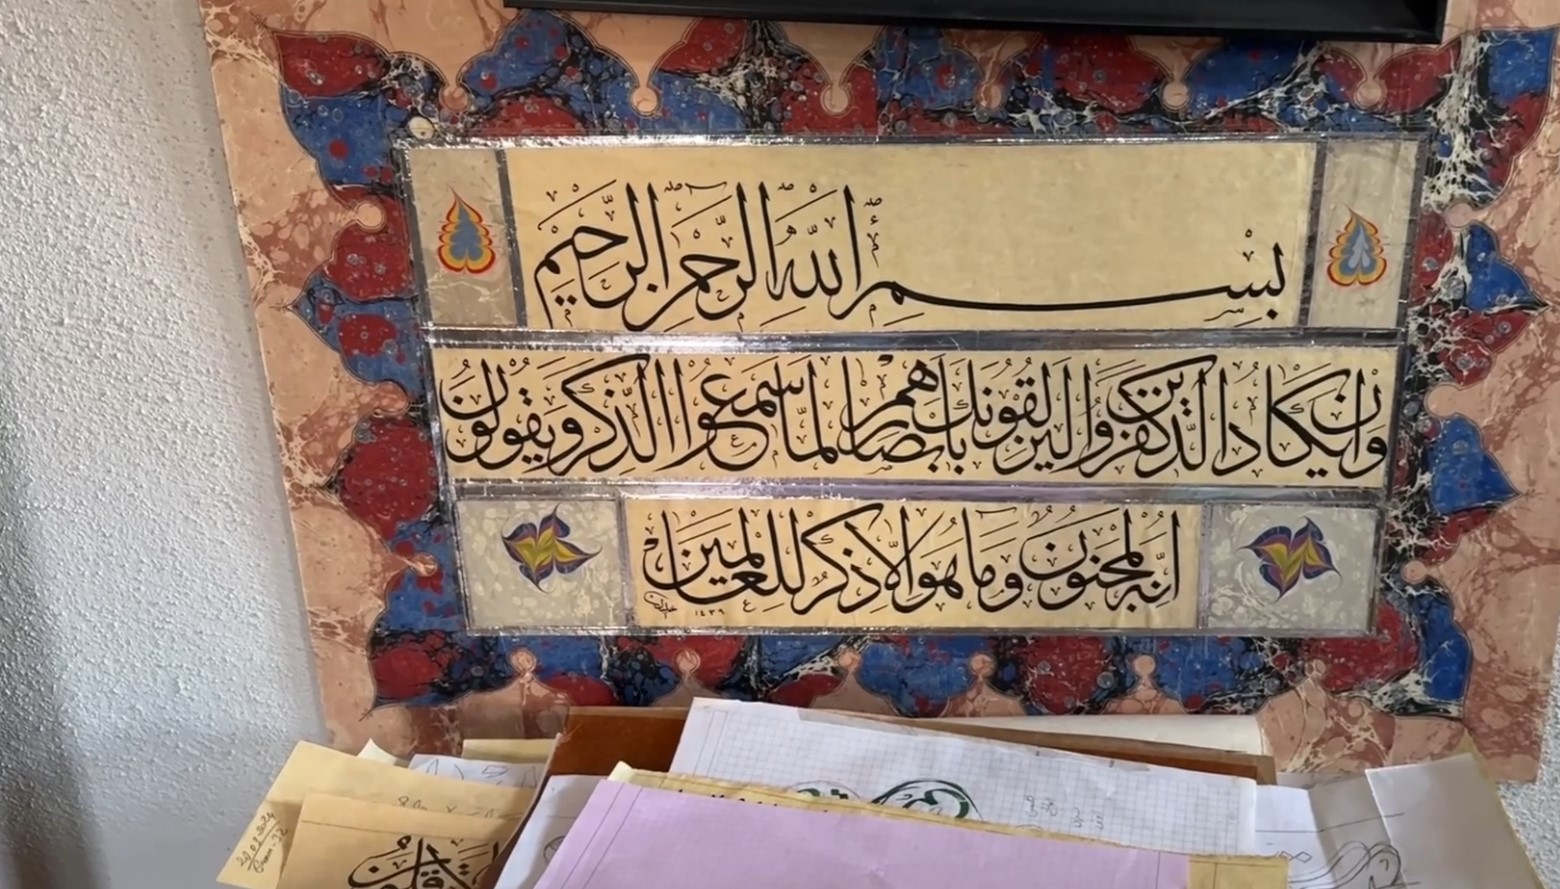 بِسْمِ اللّٰهِ الرَّحْمٰنِ الرَّحِيمِ
وَاِنْ يَكَادُ الَّذِينَ كَفَرُوا لَيُزْلِقُونَكَ بِاَبْصَارِهِمْ لَمَّا سَمِعُوا الذِّكْرَ وَيَقُولُونَ
اِنَّهُ لَمَجْنُونٌ وَمَا هُوَ اِلَّا ذِكْرٌ لِلْعَالَمِينَ
١٤٣٩